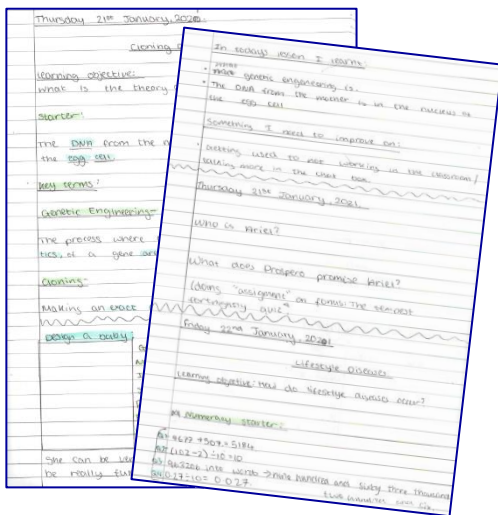 Thursday 21st January, 2021.
Cloning
Learning objective:
What is the theory
Starter:
The DNA from the
the egg cell.
Key terms:
Genetic Engineering-
The process where
of a gene
Cloning-
Making an exact
Design a baby
She can be
be really
In todays lesson I learnt:
• what genetic engineering is.
• The DNA from the mother is in the nucleus of
the egg cell
Something I need to improve on:
• Getting used to not working in the classroom/
talking more in the chat box.
Thursday 21st January, 2021.
Who is Ariel?
What does Prospero promise Ariel?
(doing "assigment" on forms: The tempest
fortnightly quiz"
Friday 22nd January, 2021
Lifestyle Diseases
Learning objective: How do lifestlye diseases occur?
Numeracy starter:
4677 + 507 = 5184
(102-2) ÷ 10 = 10
963206 into words → nine hundred and sixty three thousand
two hundred and six.
0.27 ÷ 10 = 0.027